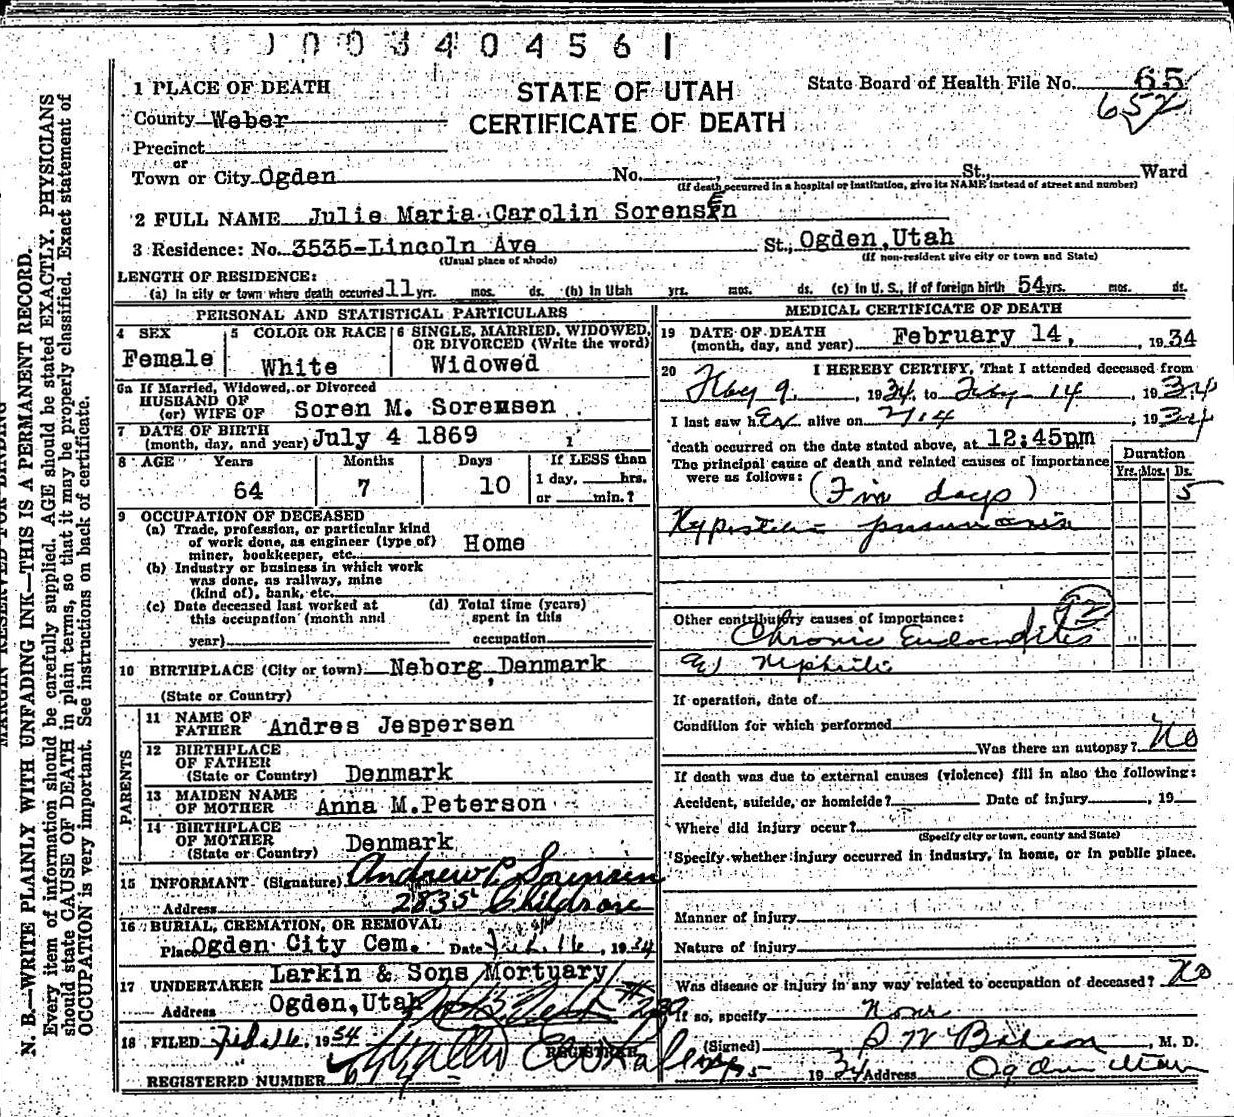 00003404561
1 PLACE OF DEATH
STATE OF UTAH
CERTIFICATE OF DEATH
State Board of Health File No. 65
652
County Weber
Precinct
or
Town or City Ogden No. St., Ward
(If death occurred in a hospital or institution, give its NAME instead of street and number)
2 FULL NAME Julie Maria Carolin Sorensen
3 Residence: No. 3535-Lincoln Ave St., Ogden, Utah
(Usual place of abode) (If non-resident give city or town and State)
LENGTH OF RESIDENCE:
(a) In city or town where death occurred 11 yrs. mos. ds. (b) In Utah yrs. mos. ds. (c) In U. S., if of foreign birth 54 yrs. mos. ds.
PERSONAL AND STATISTICAL PARTICULARS
4 SEX
Female
5 COLOR OR RACE
White
6 SINGLE, MARRIED, WIDOWED, OR DIVORCED (Write the word)
Widowed
6a If Married, Widowed, or Divorced
HUSBAND OF
(or) WIFE OF Soren M. Sorensen
7 DATE OF BIRTH
(month, day, and year) July 4 1869
8 AGE Years Months Days If LESS than
64 7 10 1 day, hrs.
or min.?
9 OCCUPATION OF DECEASED
(a) Trade, profession, or particular kind
of work done, as engineer (type of)
miner, bookkeeper, etc. Home
(b) Industry or business in which work
was done, as railway, mine
(kind of), bank, etc.
(c) Date deceased last worked at
this occupation (month and
year)
(d) Total time (years)
spent in this
occupation
10 BIRTHPLACE (City or town) Neborg, Denmark
(State or Country)
PARENTS
11 NAME OF
FATHER Andres Jespersen
12 BIRTHPLACE
OF FATHER
(State or Country) Denmark
13 MAIDEN NAME
OF MOTHER Anna M. Peterson
14 BIRTHPLACE
OF MOTHER
(State or Country) Denmark
15 INFORMANT (Signature) Andrew P. Sorensen
Address 2835 Childs ave
16 BURIAL, CREMATION, OR REMOVAL
Place Ogden City Cem. Date Feb. 16, 1934
17 UNDERTAKER Larkin & Sons Mortuary
Address Ogden, Utah
18 FILED Feb 16, 1934
REGISTRAR
REGISTERED NUMBER
MEDICAL CERTIFICATE OF DEATH
19 DATE OF DEATH
(month, day, and year) February 14, , 1934
20 I HEREBY CERTIFY, That I attended deceased from
Feby 9, 1934, to Feby 14, 1934
I last saw her alive on 2/14, 1934
death occurred on the date stated above, at 12:45pm
The principal cause of death and related causes of importance
were as follows: (Five days)
Duration
Yrs. Mos. Ds.
5
Hypostatic pneumonia
92
Other contributory causes of importance:
Chronic Endocarditis
Nephritis
If operation, date of
Condition for which performed
Was there an autopsy? No
If death was due to external causes (violence) fill in also the following:
Accident, suicide, or homicide? Date of injury , 19
Where did injury occur?
(Specify city or town, county and State)
Specify whether injury occurred in industry, in home, or in public place.
Manner of injury
Nature of injury
Was disease or injury in any way related to occupation of deceased? No
If so, specify None
(Signed) , M. D.
1934 Address Ogden Utah
N. B.—WRITE PLAINLY WITH UNFADING INK—THIS IS A PERMANENT RECORD.
Every item of information should be carefully supplied. AGE should be stated EXACTLY. PHYSICIANS
should state CAUSE OF DEATH in plain terms, so that it may be properly classified. Exact statement of
OCCUPATION is very important. See instructions on back of certificate.